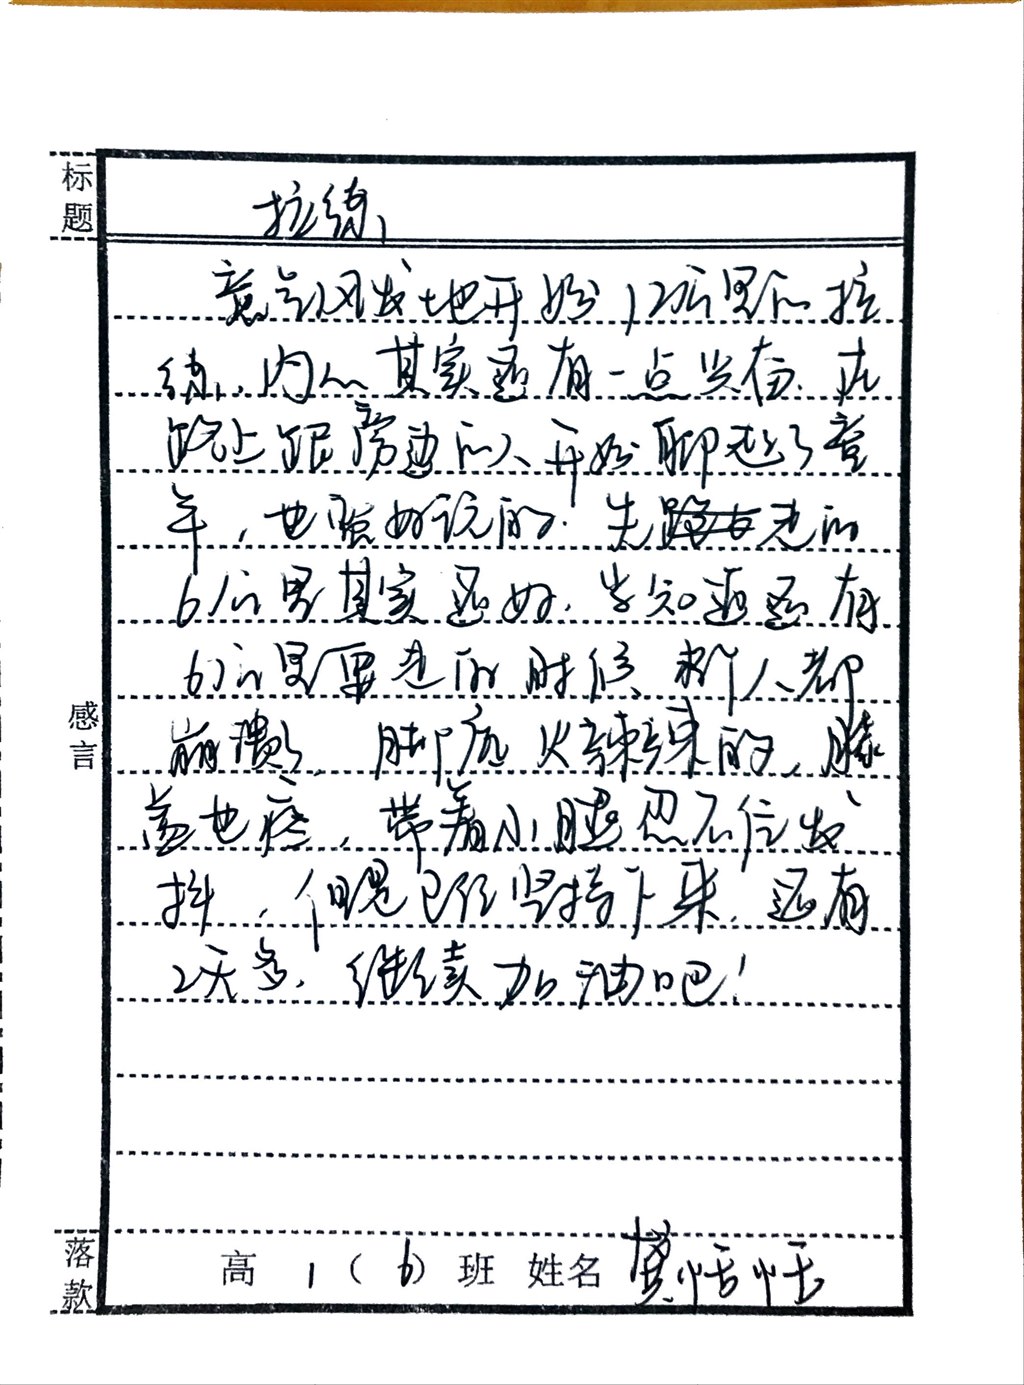 标题
拉练
意气风发地开始12公里的拉
练,内心其实还有一点兴奋.在
路上跟旁边的人开始聊起了童
年,也蛮好玩的.先走的
6公里其实还好.当知道还有
6公里要走的时候,整个人都
崩溃了,脚底火辣辣的,膝
盖也疼,带着小腿忍不住发
抖,但是已经坚持下来,还有
2天多,继续加油吧!
感言
落款
高1(6)班 姓名 恬恬